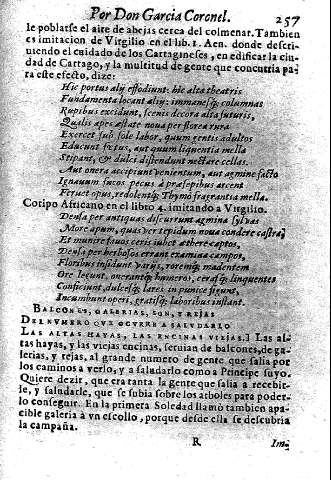 Por Don Garcia Coronel. 257
le poblasse el aire de abejas cerca del colmenar. Tambien
es imitacion de Virgilio en el lib. 1. Aen. donde descri-
uiendo el cuidado de los Cartagineses, en edificar la ciu-
dad de Cartago, y la multitud de gente que concurria pa-
ra este efecto, dize:
Hic portus alij effodiunt: hic alta theatris
Fundamenta locant alij: immanesq; columnas
Rupibus excidunt, scenis decora alta futuris,
Qualis apes æstate noua per florea rura
Exercet sub sole labor, quum gentis adultos
Educunt fœtus, aut quum liquentia mella
Stipant, & dulci distendunt nectare cellas.
Aut onera accipiunt venientum, aut agmine facto
Ignauum fucos pecus à præsepibus arcent
Feruet opus, redolentq; thymo fragrantia mella.
Coripo Africano en el libro 4. imitando à Virgilio.
Densa per antiquas discurrunt agmina syluas
More apum, quas ver tepidum noua condere castra,
Et munire fauos ceris iubet æthere captos,
Densa per herbosos errant examina campos,
Floribus insidunt varijs, roremq; madentem
Ore legunt, onerantq; humeros, cerasq; linquentes
Conficiunt, dulcesq; lares in punice figunt,
Incumbunt operi, gratisq; laboribus instant.
BALCONES, GALERIAS, SON, Y REJAS
DEL NVMERO QVE OCVRRE A SALVDARLO
LAS ALTAS HAYAS, LAS ENCINAS VIEJAS.] Las al-
tas hayas, y las viejas encinas, seruian de balcones, de ga-
lerias, y rejas, al grande numero de gente que salia por
los caminos a verlo, y a saludarlo como a Principe suyo.
Quiere dezir, que era tanta la gente que salia a recebir-
le, y saludarle, que se subia sobre los arboles para poder-
lo conseguir. En la primera Soledad llamò tambien apa-
cible galeria à vn escollo, porque desde ella se descubria
la campaña.
R Imi-